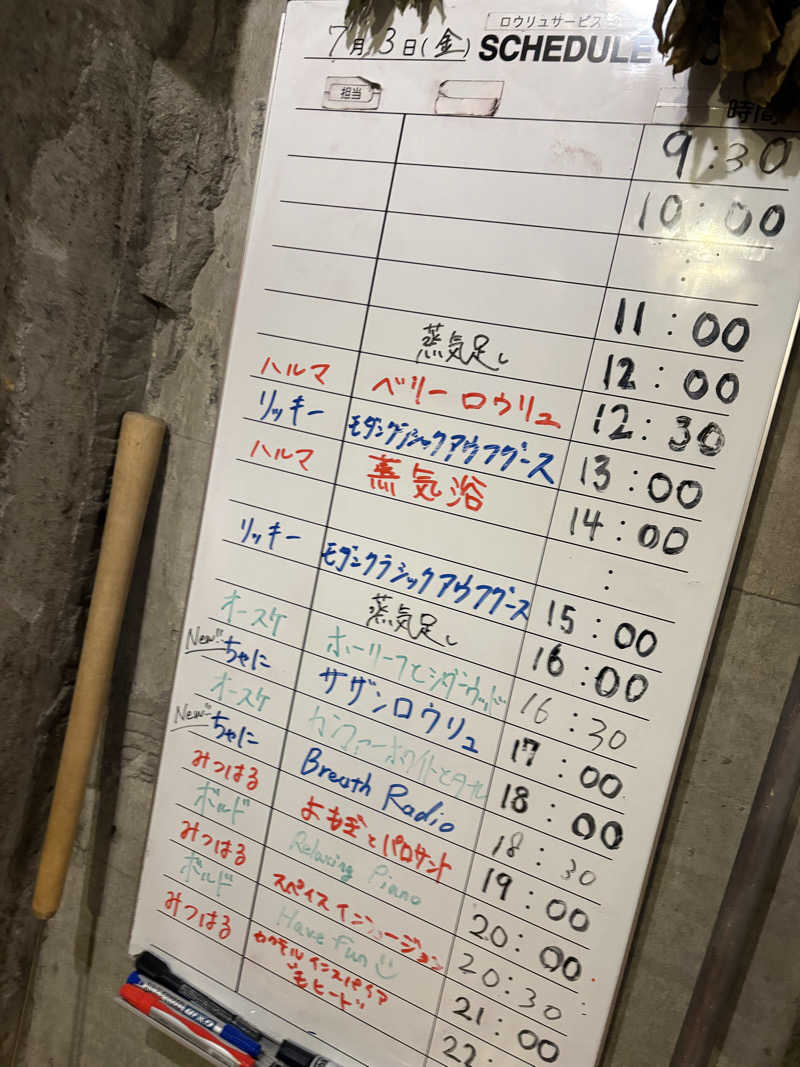 ロウリュサービス
7月3日(金) SCHEDULE
担当 時間
9:30
10:00
:
11:00
蒸気足し 12:00
ハルマ ベリーロウリュ 12:30
リッキー モダンクラシックアウフグース 13:00
ハルマ 蒸気浴 14:00
:
リッキー モダンクラシックアウフグース 15:00
蒸気足し 16:00
オースケ ホーリーフとシダーウッド 16:30
New!! ちゃに サザンロウリュ 17:00
オースケ カンファーホワイトとタール 18:00
New!! ちゃに Breath Radio 18:30
みつはる よもぎとパロサント 19:00
ボルド Relaxing Piano 20:00
みつはる 20:30
ボルド Have Fun 21:00
みつはる カクテルインスパイア 22:
モヒート